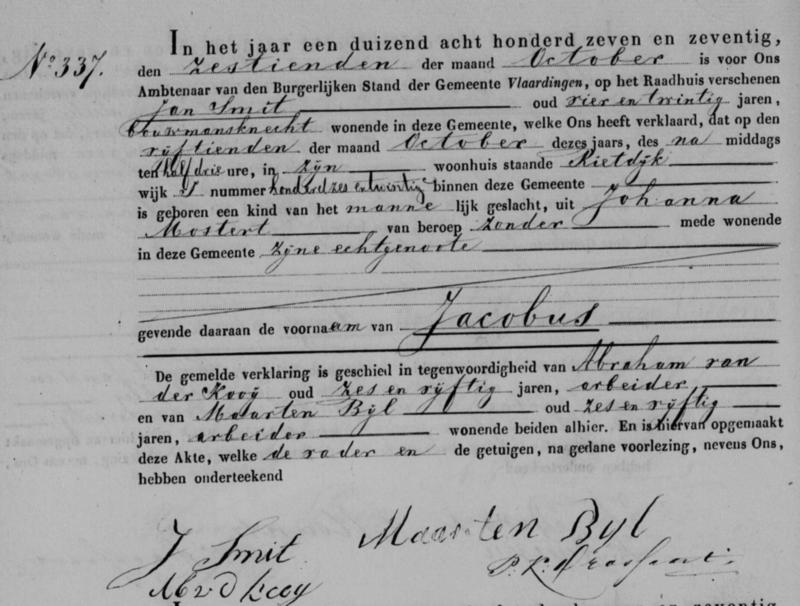 In het jaar een duizend acht honderd zeven en zeventig,
No 337. den zestienden der maand October is voor Ons
Ambtenaar van den Burgerlijken Stand der Gemeente Vlaardingen, op het Raadhuis verschenen
Jan Smit oud vier en twintig jaren,
bouwmansknecht wonende in deze Gemeente, welke Ons heeft verklaard, dat op den
vijftienden der maand October dezes jaars, des na middags
ten half drie ure, in zijn woonhuis staande Rietdijk
wijk nummer honderd zes en twintig binnen deze Gemeente
is geboren een kind van het manne lijk geslacht, uit Johanna
Mostert van beroep zonder mede wonende
in deze Gemeente zijne echtgenoote
gevende daaraan de voornaam van Jacobus
De gemelde verklaring is geschied in tegenwoordigheid van Abraham van
der Kooij oud zes en vijftig jaren, arbeider
en van Maarten Bijl oud zes en vijftig
jaren, arbeider wonende beiden alhier. En is hiervan opgemaakt
deze Akte, welke de vader en de getuigen, na gedane voorlezing, nevens Ons,
hebben onderteekend
J Smit Maarten Byl